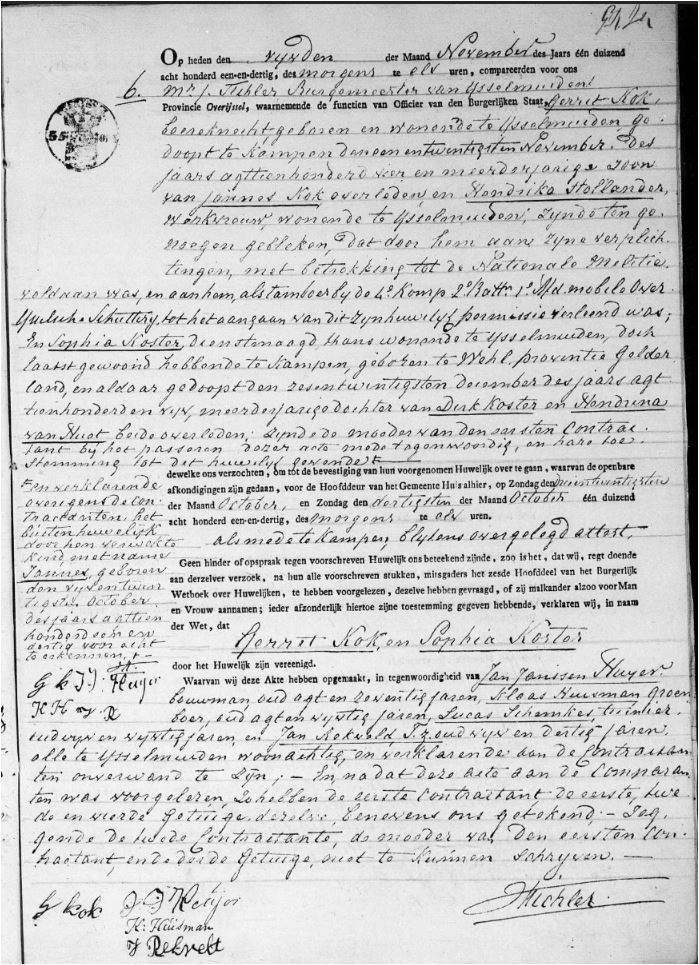 Op heden den vyfden der Maand November des Jaars één duizend
acht honderd een-en-dertig, des morgens te elv uren, compareerden voor ons
6. Mr. J. Tichler Burgemeester van Ysselmuiden
Provincie Overijssel, waarnemende de functien van Officier van den Burgerlijken Staat, Gerret Kok,
boereknecht geboren en wonende te Ysselmuiden ge-
doopt te Kampen den een entwentigsten November des
jaars agttienhonderd vier en meerderjarige zoon
van Jannes Kok overleden, en Hendrika Hollander,
werkvrouw, wonende te Ysselmuiden, zynde ten ge-
noegen gebleken, dat door hem aan zyne verplich-
tingen, met betrekking tot de Nationale Melitie
voldaan was, en aan hem, als tamboer by de 4e Komp 2e Battn 1e Afd. mobele Over-
Ysselsche Schuttery, tot het aangaan van dit zyn huwelyk permissie verleend was;
En Sophia Koster, dienstmaagd, thans wonende te Ysselmuiden, doch
laatst gewoond hebbende te Kampen, geboren te Wehl, proventie Gelder-
land, en aldaar gedoopt den zesentwintigsten december des jaars agt-
tienhonderd en vyv, meerderjarige dochter van Derk Koster en Hendrina
van Huet beide overleden; zynde de moeder van den eersten Contrac-
tant by het passeren dezer acte mede tegenwoordig, en hare toe-
stemming tot dit huwelyk gevende
dewelke ons verzochten, om tot de bevestiging van hun voorgenomen Huwelijk over te gaan, waarvan de openbare
afkondigingen zijn gedaan, voor de Hoofddeur van het Gemeente Huis alhier, op Zondag den
der Maand October, en Zondag den dertigsten der Maand October één duizend
acht honderd een-en-dertig, des morgens te elv uren.
als mede te Kampen, blykens overgelegd attest,
Geen hinder of opspraak tegen voorschreven Huwelijk ons beteekend zijnde, zoo is het, dat wij, regt doende
aan derzelver verzoek, na hun alle voorschreven stukken, mitsgaders het zesde Hoofddeel van het Burgerlijk
Wetboek over Huwelijken, te hebben voorgelezen, dezelve hebben gevraagd, of zij malkander alzoo voor Man
en Vrouw aannamen; ieder afzonderlijk hiertoe zijne toestemming gegeven hebbende, verklaren wij, in naam
der Wet, dat
Gerret Kok, en Sophia Koster
door het Huwelijk zijn vereenigd.
en verklarende
overigens de Con-
tractanten, het
buiten huwelijk
door hen verwekte
kind, met name
Jannes, geboren
den vyfentwin-
tigste October
des jaars agttien
honderd een en
dertig voor echt
te erkennen,
G k J J: Heijer
K H
Waarvan wij deze Akte hebben opgemaakt, in tegenwoordigheid van Jan Janssen Huyer
bouwman, oud agt en zeventig jaren, Klaas Huisman groen-
boer, oud agt en vyftig jaren, Lucas Schemkes,
oud vyv en vyftig jaren, en Jan Rekveld T.z. oud vyv en dertig jaren
alle te Ysselmuiden woonachtig, en verklarende aan de Contractan-
ten onverwand te zyn; – En, na dat deze acte aan de Comparan-
ten was voorgelezen, zo hebben de eerste Contractant de eerste, twe-
de en vierde Getuige, dezelve, benevens ons getekend; – Zeg-
gende de twede Contractante, de moeder van den eersten Con-
tractant, en de derde Getuige, niet te kunnen schryven. –
G kok J J Heijer
K: Huisman
J Rekvelt
J Tichler